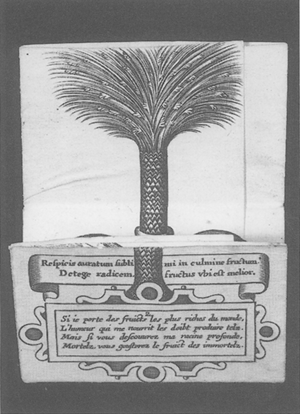 Respicis auratum subli mi in culmine fructum
Detege radicem, fructus vbi est melior.
Si ie porte des fruicts les plus riches du monde,
L'humeur qui me nourrit les doibt produire telz.
Mais si vous descouurez ma racine profonde,
Mortelz vous gousterez le fruict des immortelz.